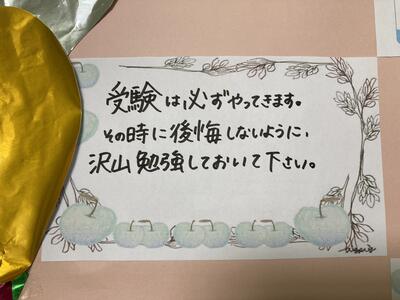 受験は必ずやってきます。
その時に後悔しないように、
沢山勉強しておいて下さい。